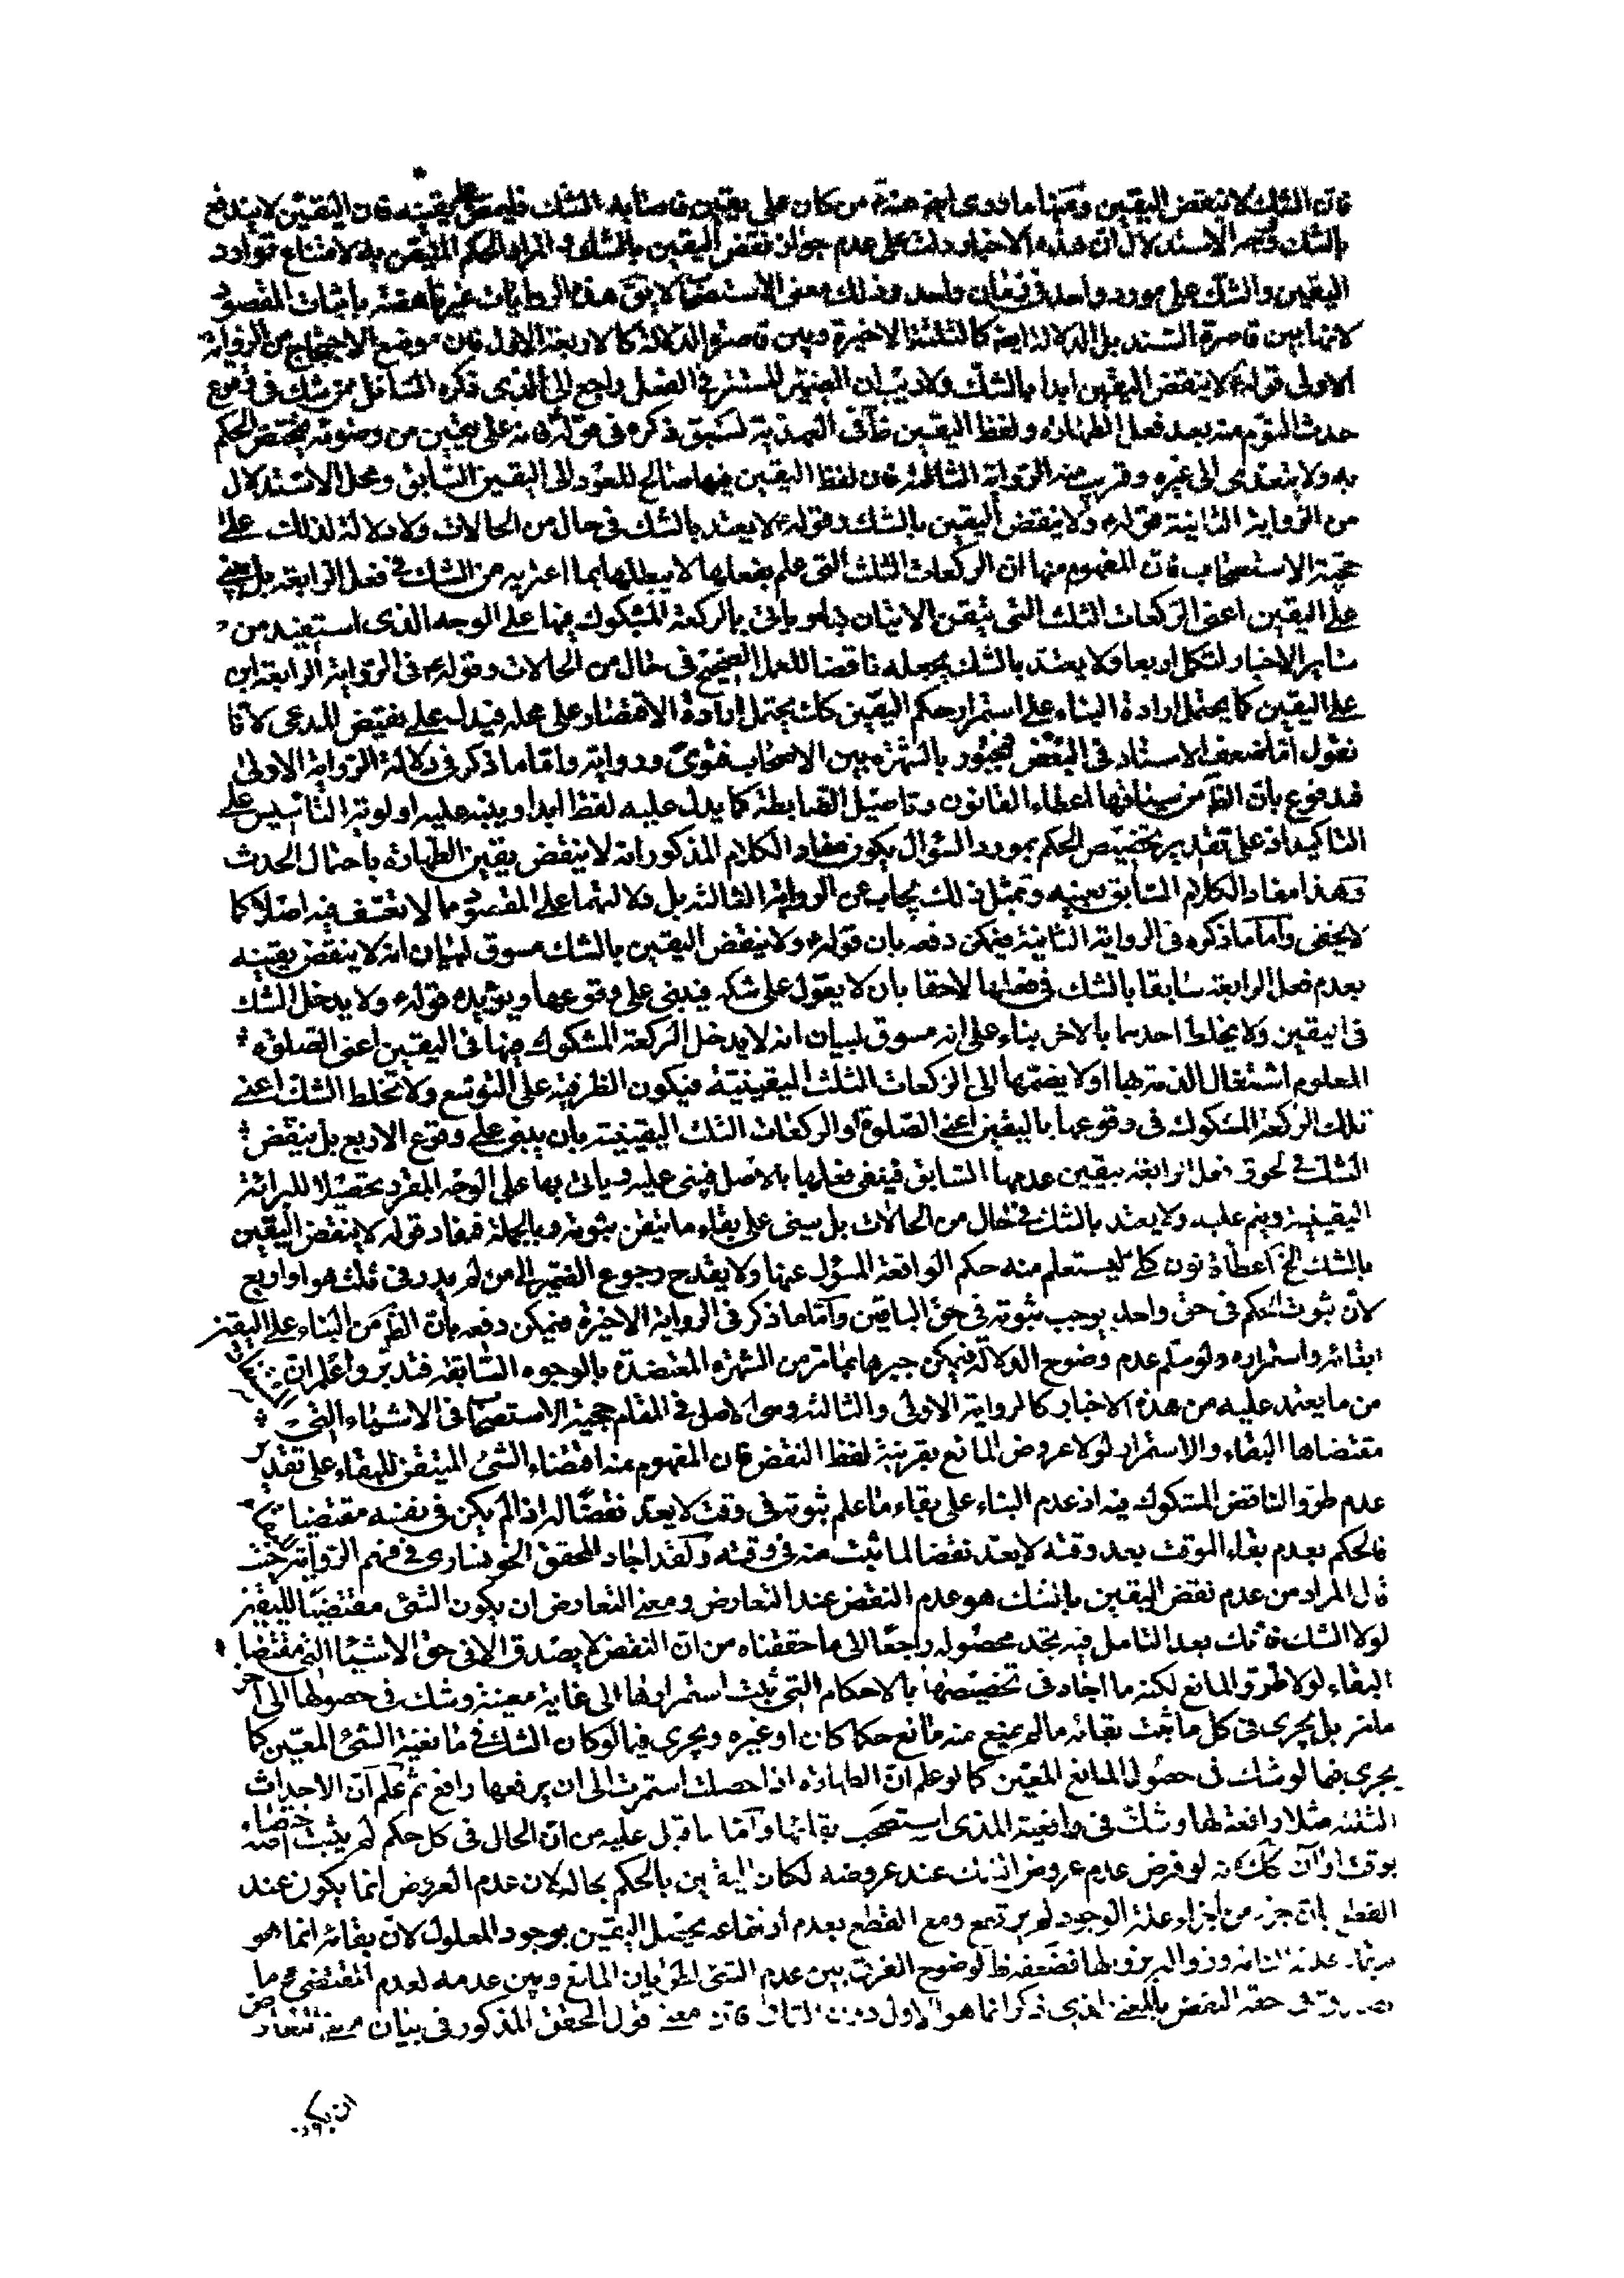 فان الشك لا ينقض اليقين ومنها ما روى ايضا عنه من كان على يقين فاصابه الشك فليمض على يقينه فان اليقين لا يندفع
بالشك وجه الاستدلال ان هذه الاخبار دلت على عدم جواز نقض اليقين بالشك والمراد الحكم المتيقن به لامتناع توارد
اليقين والشك على مورد واحد في زمان واحد وذلك معنى الاستصحاب لا يق هذه الروايات غير ناهضة باثبات المقصود
لانها بين قاصرة السند بل الدلالة ايضا كالثلثة الاخيرة وبين قاصرة الدلالة كالاربعة الاول فان موضع الاحتجاج من الرواية
الاولى قوله لا ينقض اليقين ابدا بالشك ولا ريب ان الضمير المستتر في الفعل راجع الى الذى ذكره السائل ممن شك في وقوع
حدث النوم منه بعد فعل الطهارة ولفظ اليقين ظ في العهدية لسبق ذكره في قوله فانه على يقين من وضوئه فيختص الحكم
به ولا يتعدى الى غيره وقريب منه الرواية الثالثة فان لفظ اليقين فيها صالح للعود الى اليقين السابق ومحل الاستدلال
من الرواية الثانية قوله ولا ينقض اليقين بالشك وقوله لا يعتد بالشك في حال من الحالات ولا دلالة لذلك على
حجية الاستصحاب فان المفهوم منها ان الركعات الثلث التى علم بفعلها لا يبطلها بما اعتريه من الشك في فعل الرابعة بل يبنى
على اليقين اعنى الركعات الثلث التى تيقن الاتيان بها وياتى بالركعة المشكوك فيها على الوجه الذى استفيد من
ساير الاخبار لتكمل اربعا ولا يعتد بالشك بجعله ناقضا للعمل الصحيح في حال من الحالات وقوله في الرواية الرابعة ابن
على اليقين كما يحتمل ارادة البناء على استمرار حكم اليقين كك يحتمل ارادة الاقتصار على محله فيدل على نقيض المدعى لانا
نقول اما ضعف الاسناد في البعض فمجبور بالشهرة بين الاصحاب فتوى ورواية واما ما ذكر في دلالة الرواية الاولى
فمدفوع بان الظ من سياقها اعطاء القانون وتاصيل الضابطة كما يدل عليه لفظ ابدا وينبه عليه اولوية التاسيس على
التاكيد اذ على تقدير تخصيص الحكم بمورد السؤال يكون مفاد الكلام المذكور انه لا ينقض يقين الطهارة باحتمال الحدث
وهذا مفاد الكلام السابق بعينه وبمثل ذلك يجاب عن الرواية الثالثة بل دلالتها على المقصود مما لا تعسف فيه اصلا كما
لا يخفى واما ما ذكره في الرواية الثانية فيمكن دفعه بان قوله ولا ينقض اليقين بالشك مسوق لبيان انه لا ينقض يقينه
بعدم فعل الرابعة سابقا بالشك في فعلها لاحقا بان لا يعول على شكه فيبنى على وقوعها ويؤيده قوله ولا يدخل الشك
في اليقين ولا يخلط احدهما بالاخر بناء على انه مسوق لبيان انه لا يدخل الركعة المشكوك فيها في اليقين اعنى الصلوة
المعلوم اشتغال الذمة بها اولا يضمها الى الركعات الثلث اليقينية فيكون الظرفية على التوسع ولا يخلط الشك اعنى
تلك الركعة المشكوك في وقوعها باليقين اعنى الصلوة او الركعات الثلث اليقينية بان يبنى على وقوع الاربع بل ينقض
الشك في لحوق فعل الرابعة بيقين عدمها السابق فينفى فعلها بالاصل فيبنى عليه وياتى بها على الوجه المقرر تحصيلا للبرائة
اليقينية ويتم عليه ولا يعتد بالشك في حال من الحالات بل يبنى على بقاء ما تيقن بثبوته وبالجملة فمفاد قوله لا ينقض اليقين
بالشك الخ اعطاء قانون كلى ليستعلم منه حكم الواقعة المسؤل عنها ولا يقدح رجوع الضمير الى من لم يدر في ثلث هو او اربع
لان ثبوت الحكم في حق واحد يوجب ثبوته في حق الباقين واما ما ذكر في الرواية الاخيرة فيمكن دفعه بان الظ من البناء على اليقين
ابقائه واستمراره ولو سلم عدم وضوح الدلالة فيمكن جبرها بما مر من الشهرة المعتضدة بالوجوه السابقة فتدبر واعلم ان
من ما يعتمد عليه من هذه الاخبار كالرواية الاولى والثالثة وهى الاصل في المقام حجية الاستصحاب في الاشياء التى
مقتضاها البقاء والاستمرار لولا عروض المانع بقرينة لفظ النقض فان المفهوم منه اقتضاء الشئ المتيقن للبقاء على تقدير
عدم طرو الناقض المشكوك فيه اذ عدم البناء على بقاء ما علم ثبوته في وقت لا يعد نقضا له اذا لم يكن في نفسه مقتضيا
فالحكم بعدم بقاء الموقت بعد وقته لا يعد نقضا لما ثبت منه في وقته ولقد اجاد المحقق الخونسارى في فهم الرواية حيث
قال المراد من عدم نقض اليقين بالشك هو عدم النقض عند التعارض ومعنى التعارض ان يكون الشئ مقتضيا لليقين
لولا الشك فانك بعد التامل فيه تجد محصوله راجعا الى ما حققناه من ان النقض لا يصدق الا في حق الاشياء التى مقتضاها
البقاء لولا طرو المانع لكنه ما اجاد في تخصيصها بالاحكام التى ثبت استمرارها الى غاية معينة وشك في حصولها الى اخر
ما مر بل يجرى في كل ما ثبت بقائه ما لم يمنع منه مانع حكما كان او غيره ويجرى فيما لو كان الشك في مانعية الشئ المعين كما
يجرى فيما لو شك في حصول المانع المعين كما لو علم ان الطهارة اذا حصلت استمرت الى ان يرفعها رافع ثم علم ان الاحداث
الثلثة مثلا رافعة لها وشك في رافعية المذى استصحب بقائها واما ما قيل عليه من ان الحال في كل حكم لم يثبت اختصاصه
بوقت او ان كك انه لو فرض عدم عروض الشك عند عروضه لكان اليقين بالحكم بحاله لان عدم العروض انما يكون عند
القطع بان جزء من اجزاء علة الوجود لم يرتفع ومع القطع بعدم ارتفاعه يحصل اليقين بوجود المعلول لان بقائه انما هو
علته التامة وزواله بزوالها فضعفه ظ لوضوح الفرق بين عدم الشئ لطريان المانع وبين عدمه لعدم المقتضى وما
في حقه النقض بالمعنى الذى ذكر انما هو الاول دون الثانى فان معنى قول المحقق المذكور في بيان معنى التعارض
ان يكون